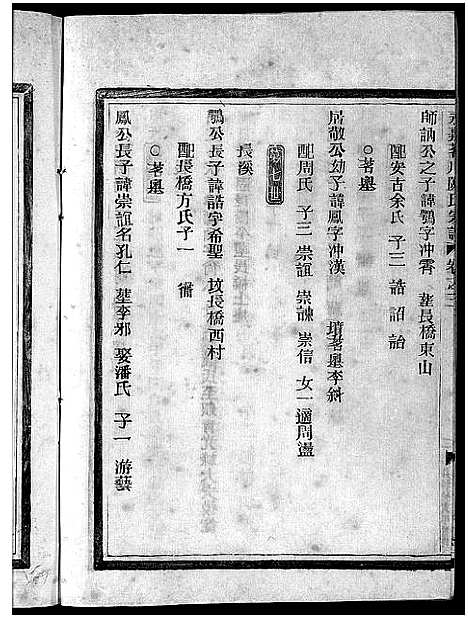 師訥公之子諱鶚字冲霄 塟長橋東山
配安古余氏 子三 誥 詔 詒
○茗嶴
居敬公幼子諱鳳字冲漢 墳茗嶴李斜
配周氏 子三 崇誼 崇諫 崇信 女一適周盪
長溪
鶚公長子諱誥字希聖 坟長橋西村
配長橋方氏子一
○茗嶴
鳳公長子諱崇誼名孔仁 塟李邪 娶潘氏 子一 游藝